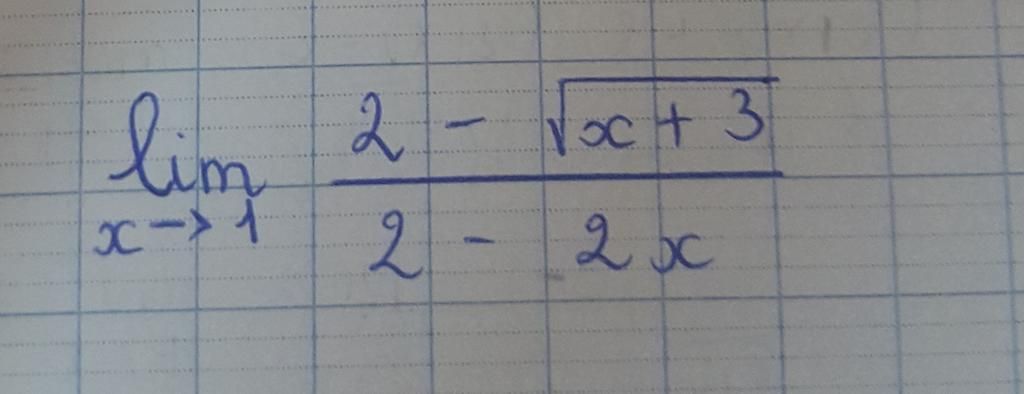 lim x→1 (2 - √(x + 3)) / (2 - 2x)